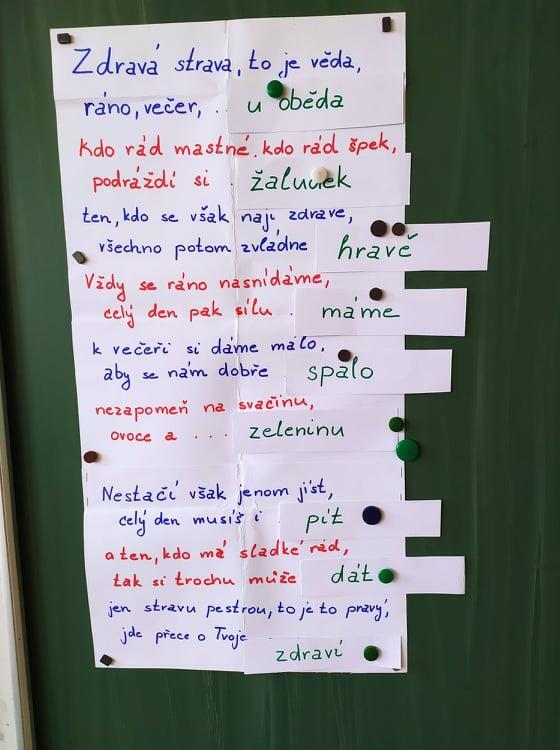 Zdravá strava, to je věda,
ráno, večer, .. u oběda
Kdo rád mastné. kdo rád špek,
podráždí si . žaludek
ten, kdo se však nají zdravě,
všechno potom zvládne hravě
Vždy se ráno nasnídáme,
celý den pak sílu . máme
k večeři si dáme málo,
aby se nám dobře spalo
nezapomeň na svačinu,
ovoce a ... zeleninu
Nestačí však jenom jíst,
celý den musíš i pít
a ten, kdo má sladké rád,
tak si trochu může dát
jen stravu pestrou, to je to pravý,
jde přece o Tvoje zdraví